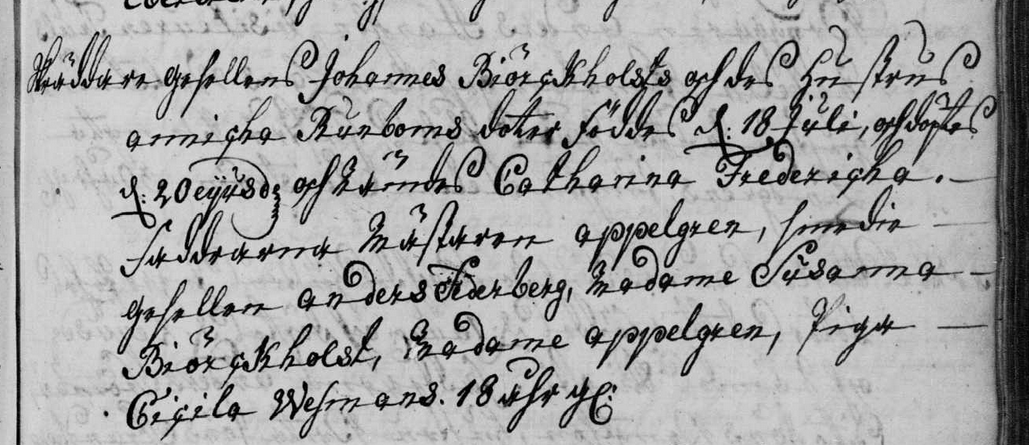 Skräddare gesellens Johannes Biörckholsts och des Hustrus
annicka Runboms doter föddes d: 18 Juli, och döptes
d: 20 eyusd: och nämdes Catharina Fredericka.
Faddrarna Mästaren appelgren, smedie
gesellen anders Federberg, Madame Susanna
Biörckholst, Madame appelgren, Piga
Cicila Wehmans. 18 åhr gl: